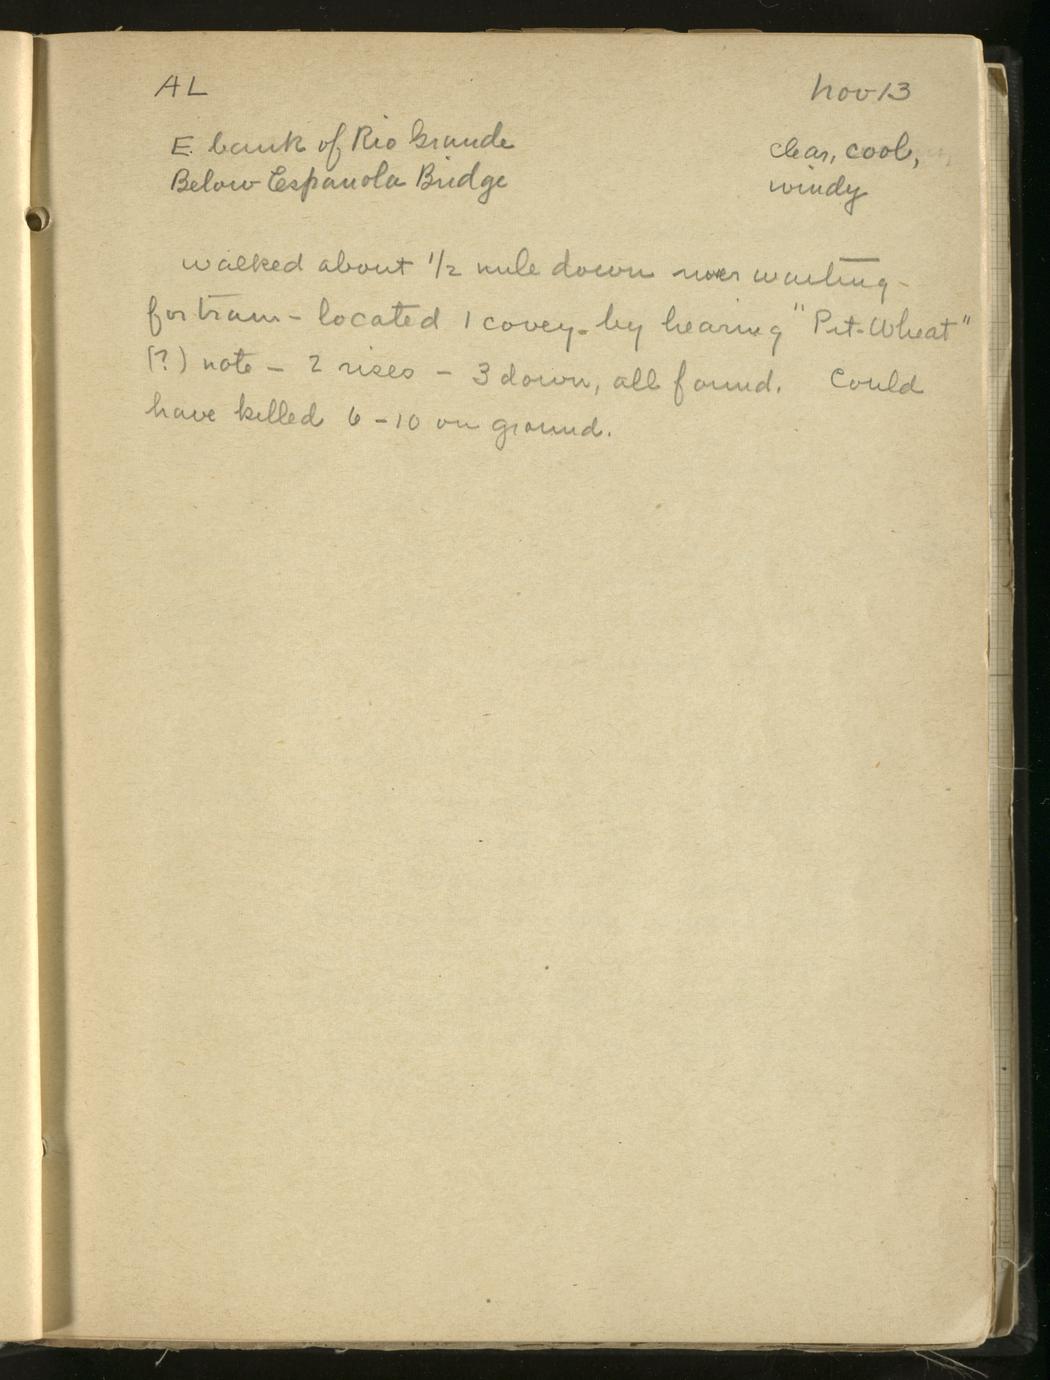 AL
Nov 13
E. bank of Rio Grande
Below Espanola Bridge
clear, cool,
windy
walked about 1/2 mile down river waiting
for train - located 1 covey - by hearing "Pit-Wheat"
(?) note - 2 rises - 3 down, all found. Could
have killed 6 - 10 on ground.